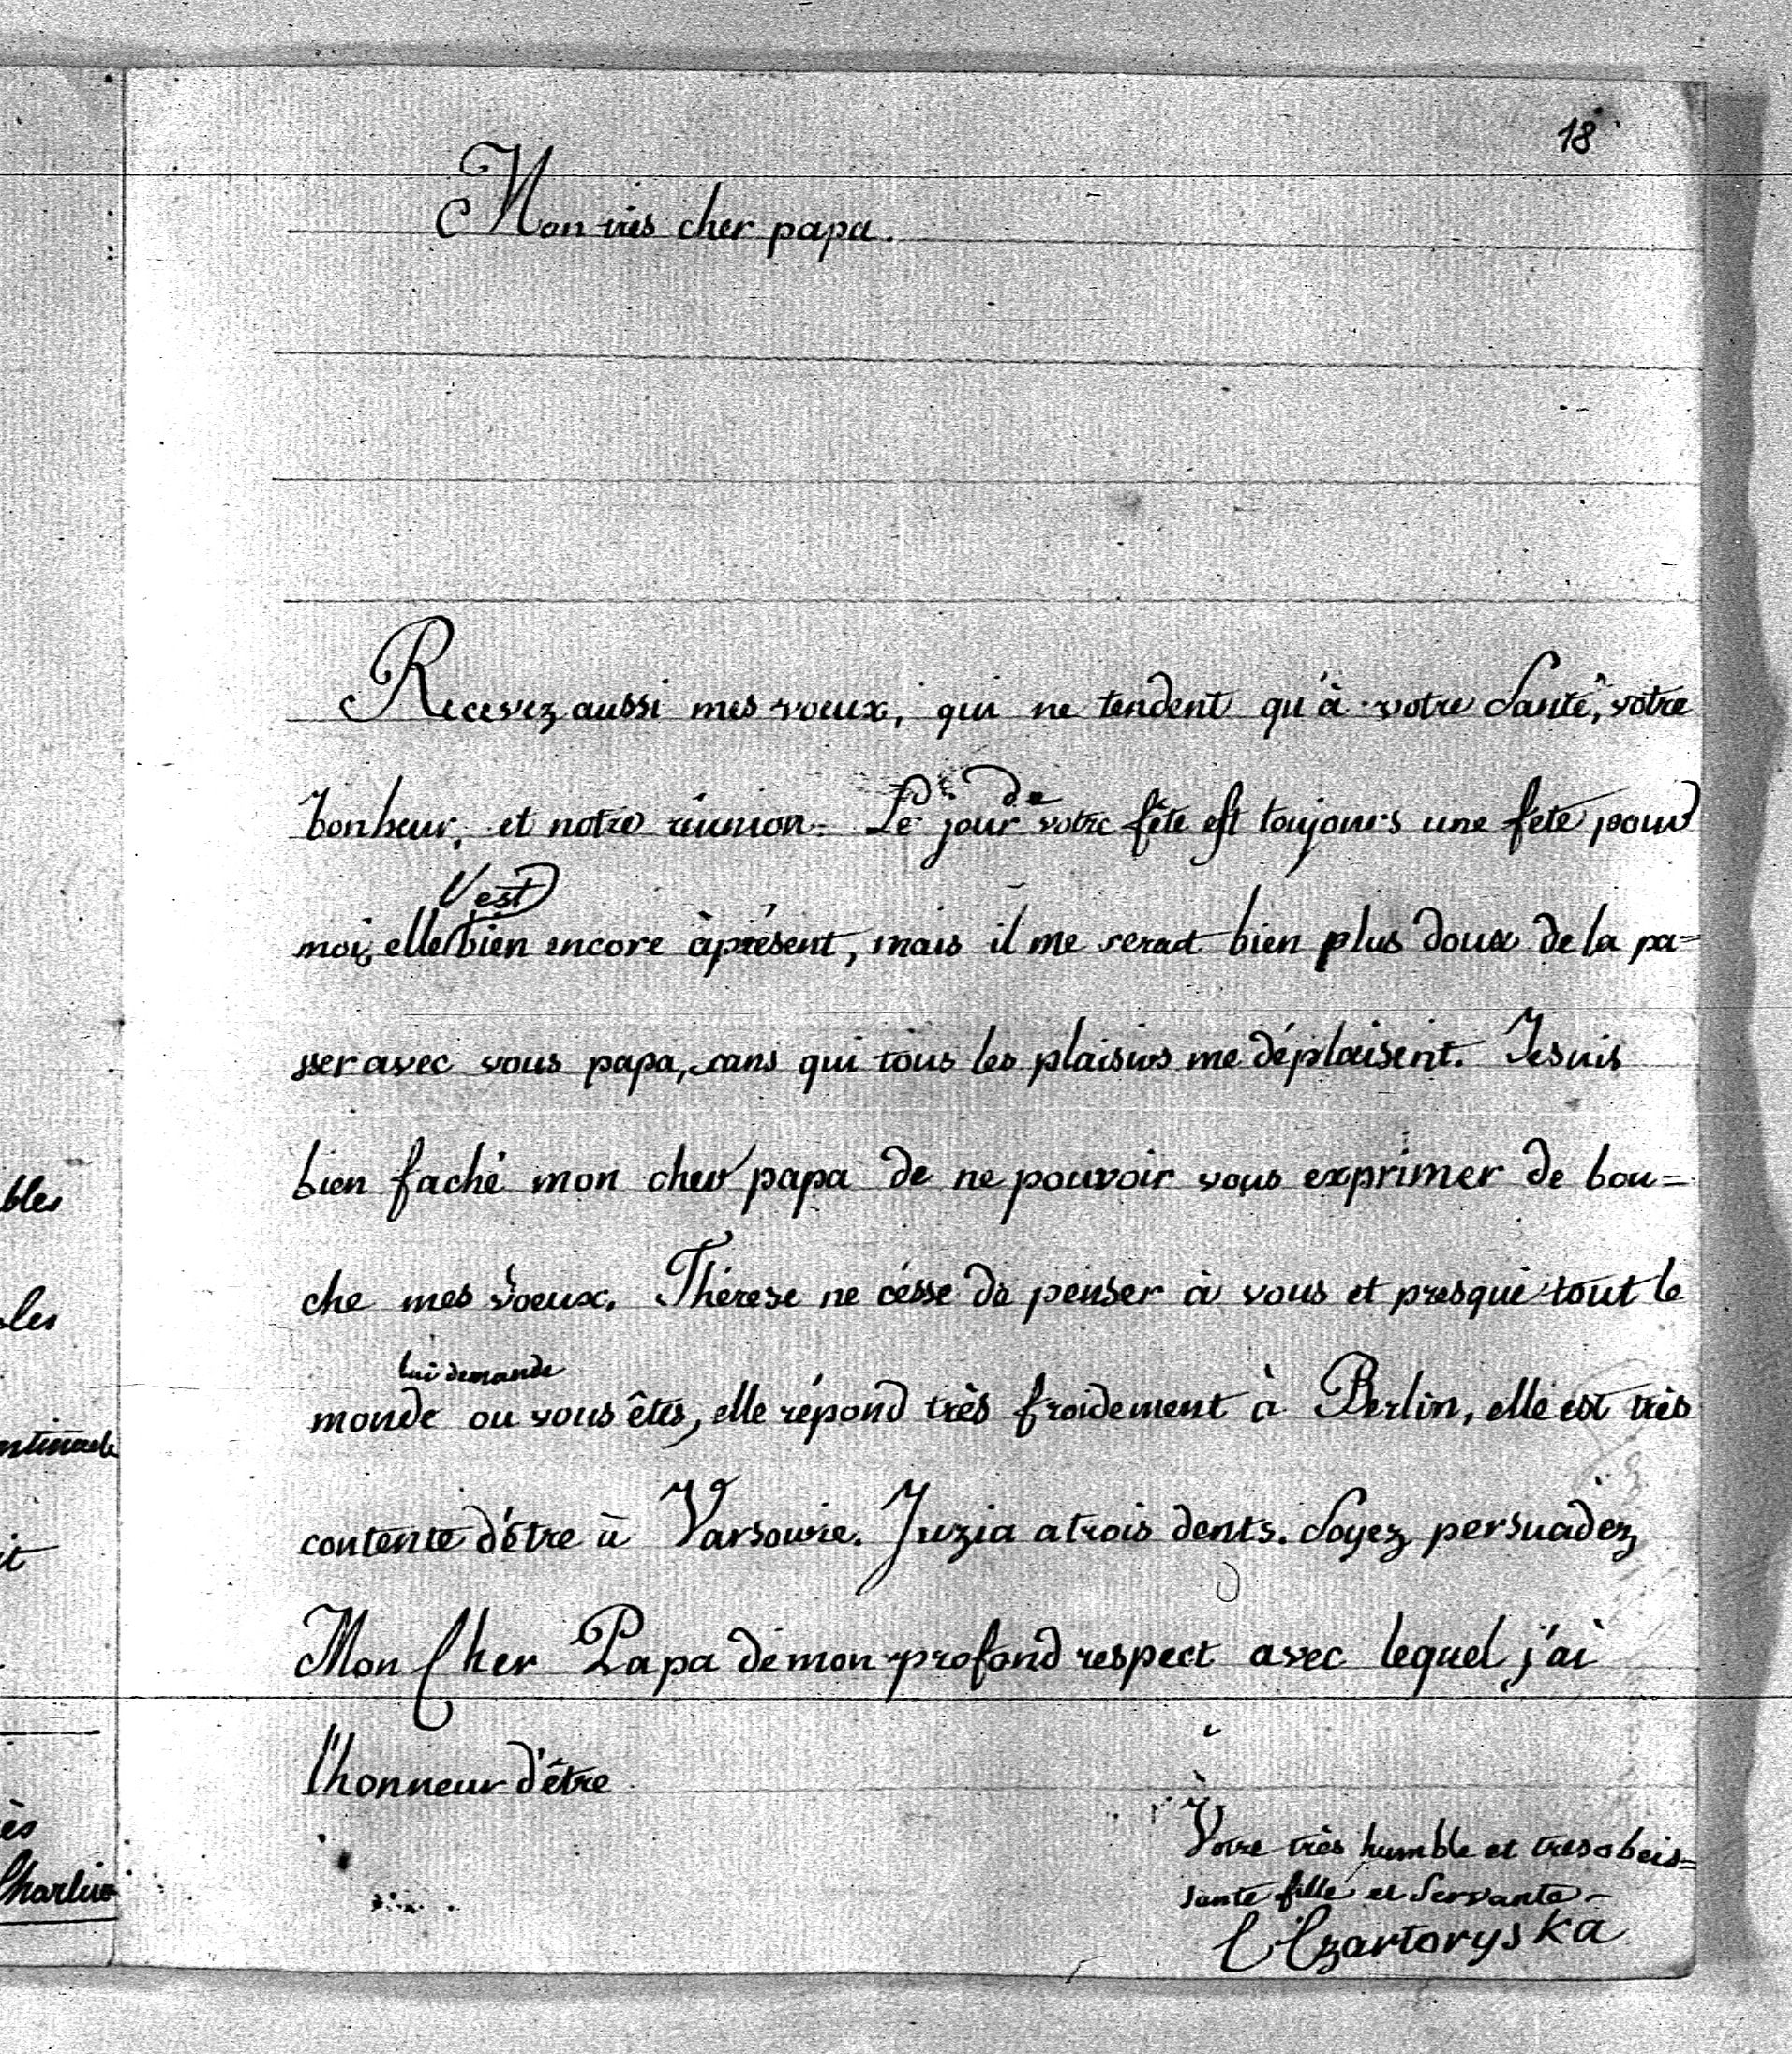 18
Mon très cher papa.
Recevez aussi mes voeux, qui ne tendent qu'à votre Santé, votre
bonheur, et notre réunion. Le jour de votre fête est toujours une fete pour
moi, elle l'est bien encore àprésent, mais il me serait bien plus doux de la pa=
sser avec vous papa, sans qui tous les plaisirs me déplaisent. Je suis
bien faché mon cher papa de ne pouvoir vous exprimer de bou=
che mes voeux. Thérese ne césse de penser à vous et presque tout le
monde lui demande ou vous êtes, elle répond très froidement à Berlin, elle est très
contente d'être à Varsovie. Juzia a trois dents. Soyez persuadez
Mon Cher Papa de mon profond respect avec lequel j'ai
l'honneur d'être
Votre très humble et tres obeis=
sante fille et Servante
C Czartoryska
bles
les
it
ès